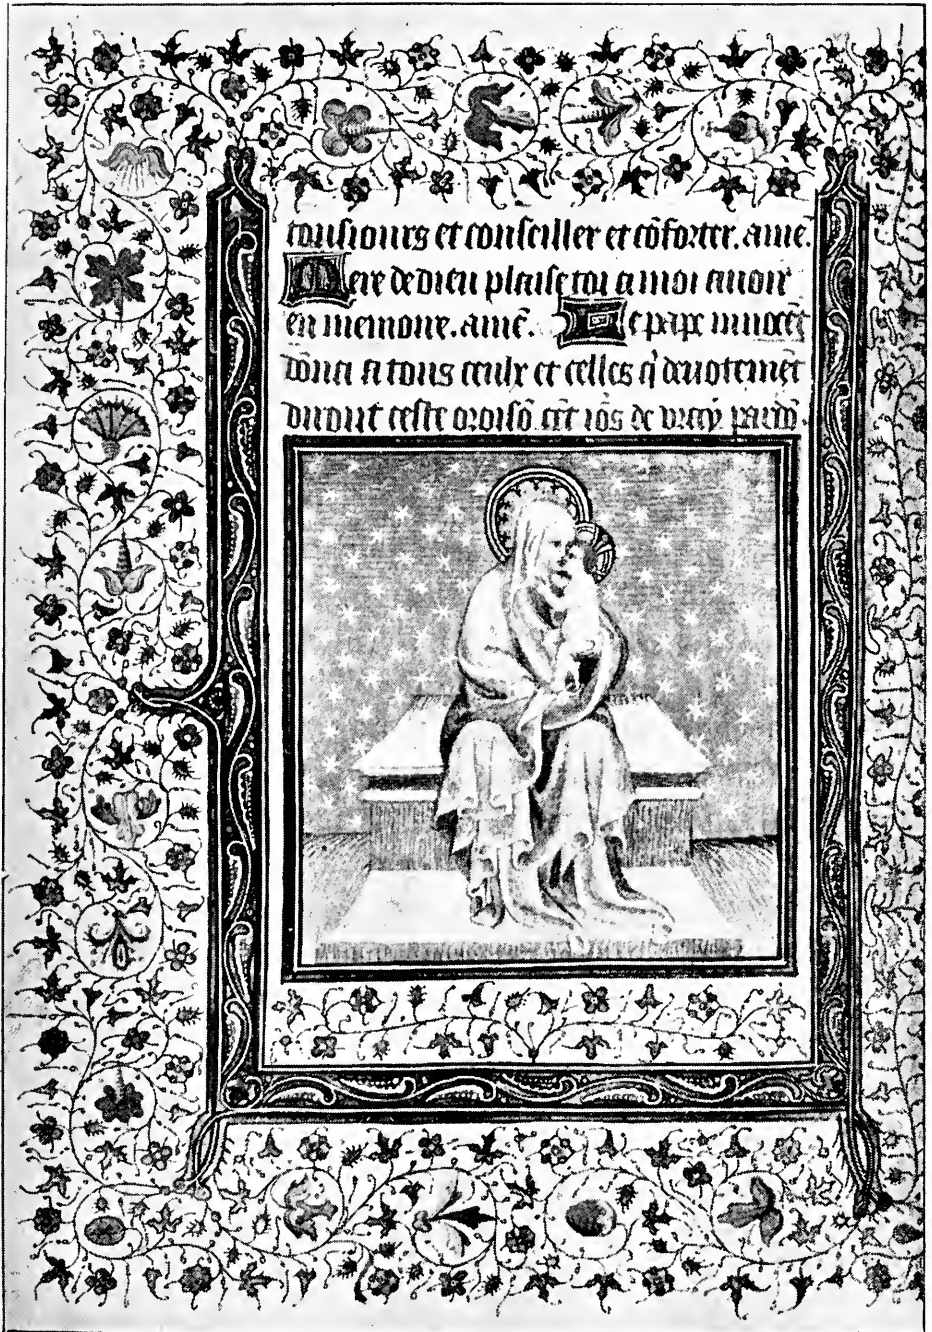 tousiours et conseiller et cõforter. ame.
Mere de dieu plaise toi a moi auoir
en memoire. amẽ. Le pape innocẽt
donna a tous ceulx et celles q̃ deuotemẽt
diront ceste oroisõ cẽt iõs de vray pardõ.